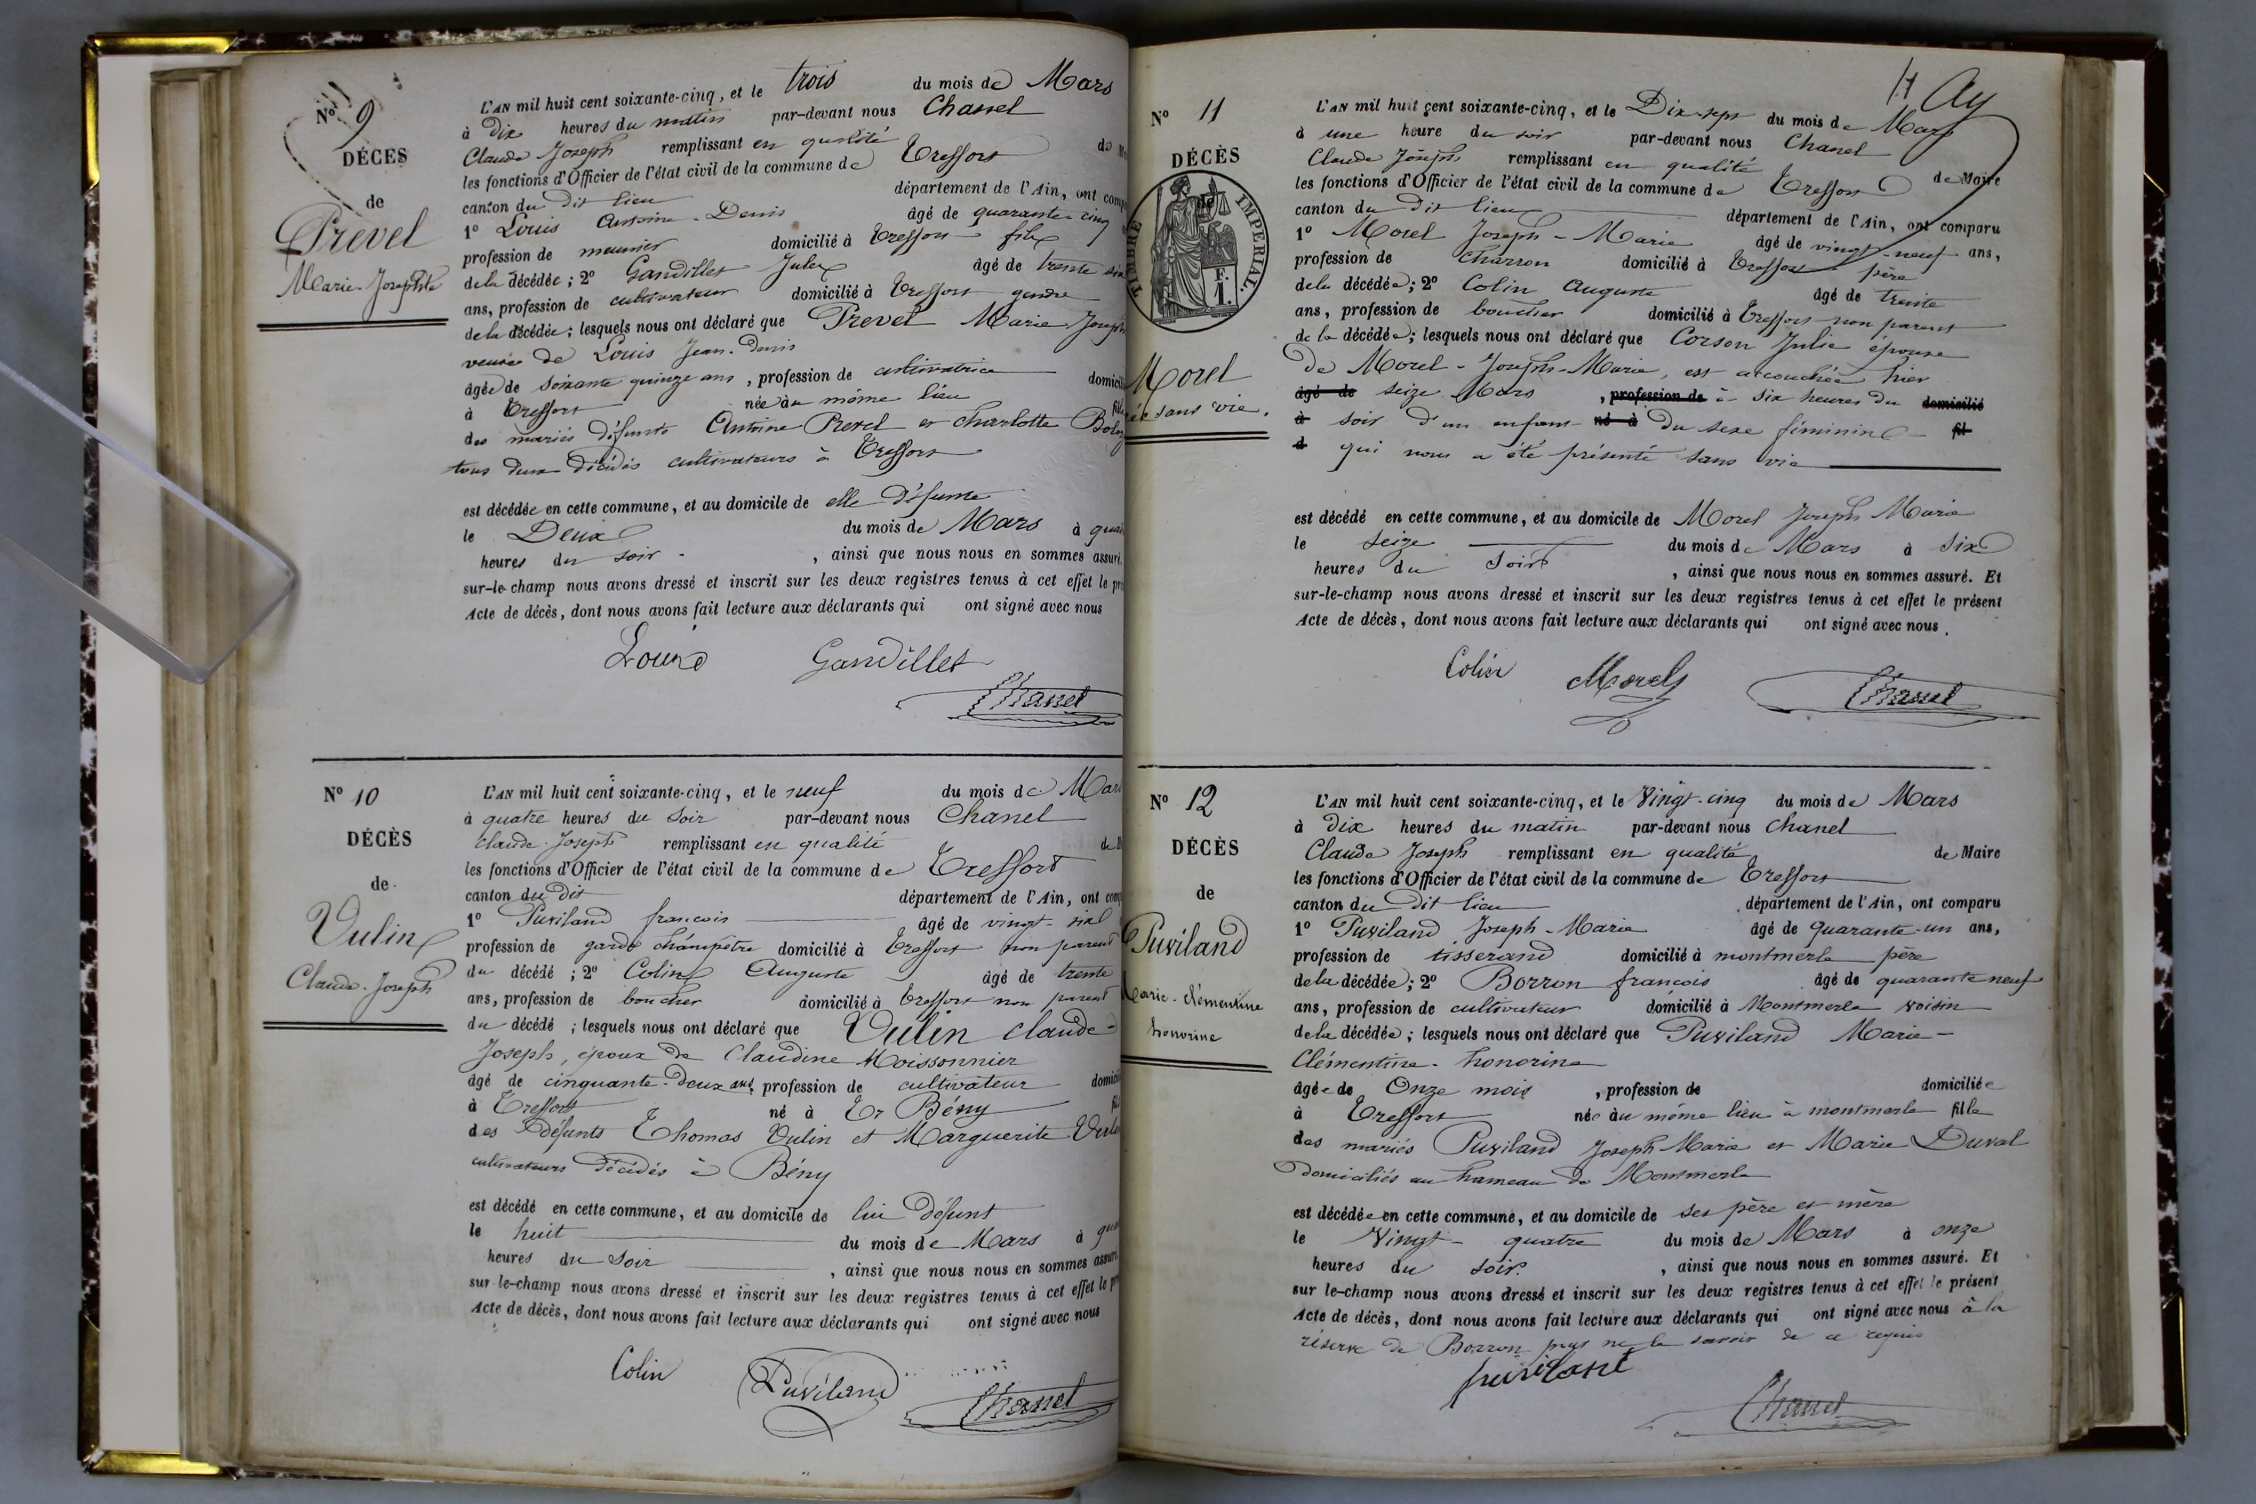 N° 9
DÉCES
de
Prevel
Marie-Josephte
L'AN mil huit cent soixante-cinq, et le trois du mois de Mars
à dix heures du matin par-devant nous Chanel
Claude Joseph remplissant en qualité de
les fonctions d'Officier de l'état civil de la commune de Treffort
canton du dit lieu département de l'Ain, ont
1° Louis Antoine-Denis âgé de quarante cinq
profession de meunier domicilié à Treffort fils
de la décédée; 2° Gandillet Jules âgé de trente six
ans, profession de cultivateur domicilié à Treffort gendre
de la décédée; lesquels nous ont déclaré que Prevel Marie
veuve de Louis Jean-Denis
âgée de soixante quinze ans, profession de cultivatrice
à Treffort née au même lieu
des mariés défunts Antoine Prevel et Charlotte
tous deux décédés cultivateurs à Treffort
est décédée en cette commune, et au domicile de elle défunte
le Deux du mois de Mars à
heures du soir, ainsi que nous nous en sommes assuré.
sur-le-champ nous avons dressé et inscrit sur les deux registres tenus à cet effet le
Acte de décès, dont nous avons fait lecture aux déclarants qui ont signé avec nous
Louis Gandillet
Chanel
N° 10
DÉCÈS
de
Vulin
Claude-Joseph
L'AN mil huit cent soixante-cinq, et le neuf du mois de Mars
à quatre heures du soir par-devant nous Chanel
Claude-Joseph remplissant en qualité de
les fonctions d'Officier de l'état civil de la commune de Treffort
canton du dit département de l'Ain, ont
1° Puviland françois âgé de vingt-six
profession de garde champêtre domicilié à Treffort non parent
du décédé; 2° Colin Auguste âgé de trente
ans, profession de boucher domicilié à Treffort non parent
du décédé; lesquels nous ont déclaré que Vulin Claude-
Joseph, époux de Claudine Moissonnier
âgé de cinquante-deux ans, profession de cultivateur
à Treffort né à Bény
des défunts Thomas Vulin et Marguerite
cultivateurs décédés à Bény
est décédé en cette commune, et au domicile de lui défunt
le huit du mois de Mars à
heures du soir, ainsi que nous nous en sommes assuré.
sur-le-champ nous avons dressé et inscrit sur les deux registres tenus à cet effet le
Acte de décès, dont nous avons fait lecture aux déclarants qui ont signé avec nous
Colin Puviland Chanel
11 Ay
N° 11
DÉCÈS
de
TIMBRE IMPERIAL.
F.
1.
Morel
née sans vie.
L'AN mil huit cent soixante-cinq, et le Dix-sept du mois de Mars
à une heure du soir par-devant nous Chanel
Claude Joseph remplissant en qualité de Maire
les fonctions d'Officier de l'état civil de la commune de Treffort
canton du dit lieu département de l'Ain, ont comparu
1° Morel Joseph-Marie âgé de vingt-neuf ans,
profession de charron domicilié à Treffort père
de la décédée; 2° Colin Auguste âgé de trente
ans, profession de boucher domicilié à Treffort non parent
de la décédée; lesquels nous ont déclaré que Corson Julie épouse
de Morel-Joseph-Marie, est accouchée hier
âgé de seize Mars, profession de à six heures du domicilié
à soir d'un enfant né à du sexe féminin fil
d qui nous a été présenté sans vie
est décédé en cette commune, et au domicile de Morel Joseph Marie
le seize du mois de Mars à six
heures du soir, ainsi que nous nous en sommes assuré. Et
sur-le-champ nous avons dressé et inscrit sur les deux registres tenus à cet effet le présent
Acte de décès, dont nous avons fait lecture aux déclarants qui ont signé avec nous.
Colin Morel Chanel
N° 12
DÉCÈS
de
Puviland
Marie-Clémentine
honorine
L'AN mil huit cent soixante-cinq, et le Vingt-cinq du mois de Mars
à dix heures du matin par-devant nous Chanel
Claude Joseph remplissant en qualité de Maire
les fonctions d'Officier de l'état civil de la commune de Treffort
canton du dit lieu département de l'Ain, ont comparu
1° Puviland Joseph-Marie âgé de quarante-un ans,
profession de tisserand domicilié à montmerle père
de la décédée; 2° Borron françois âgé de quarante neuf
ans, profession de cultivateur domicilié à Montmerle voisin
de la décédée; lesquels nous ont déclaré que Puviland Marie-
Clémentine-honorine
âgée de Onze mois, profession de domiciliée
à Treffort née au même lieu à montmerle fille
des mariés Puviland Joseph Marie et Marie Duval
domiciliés au hameau de Montmerle
est décédée en cette commune, et au domicile de ses père et mère
le Vingt-quatre du mois de Mars à onze
heures du soir, ainsi que nous nous en sommes assuré. Et
sur le-champ nous avons dressé et inscrit sur les deux registres tenus à cet effet le présent
Acte de décès, dont nous avons fait lecture aux déclarants qui ont signé avec nous à la
réserve de Borron pour ne le savoir de ce requis
puviland
Chanel